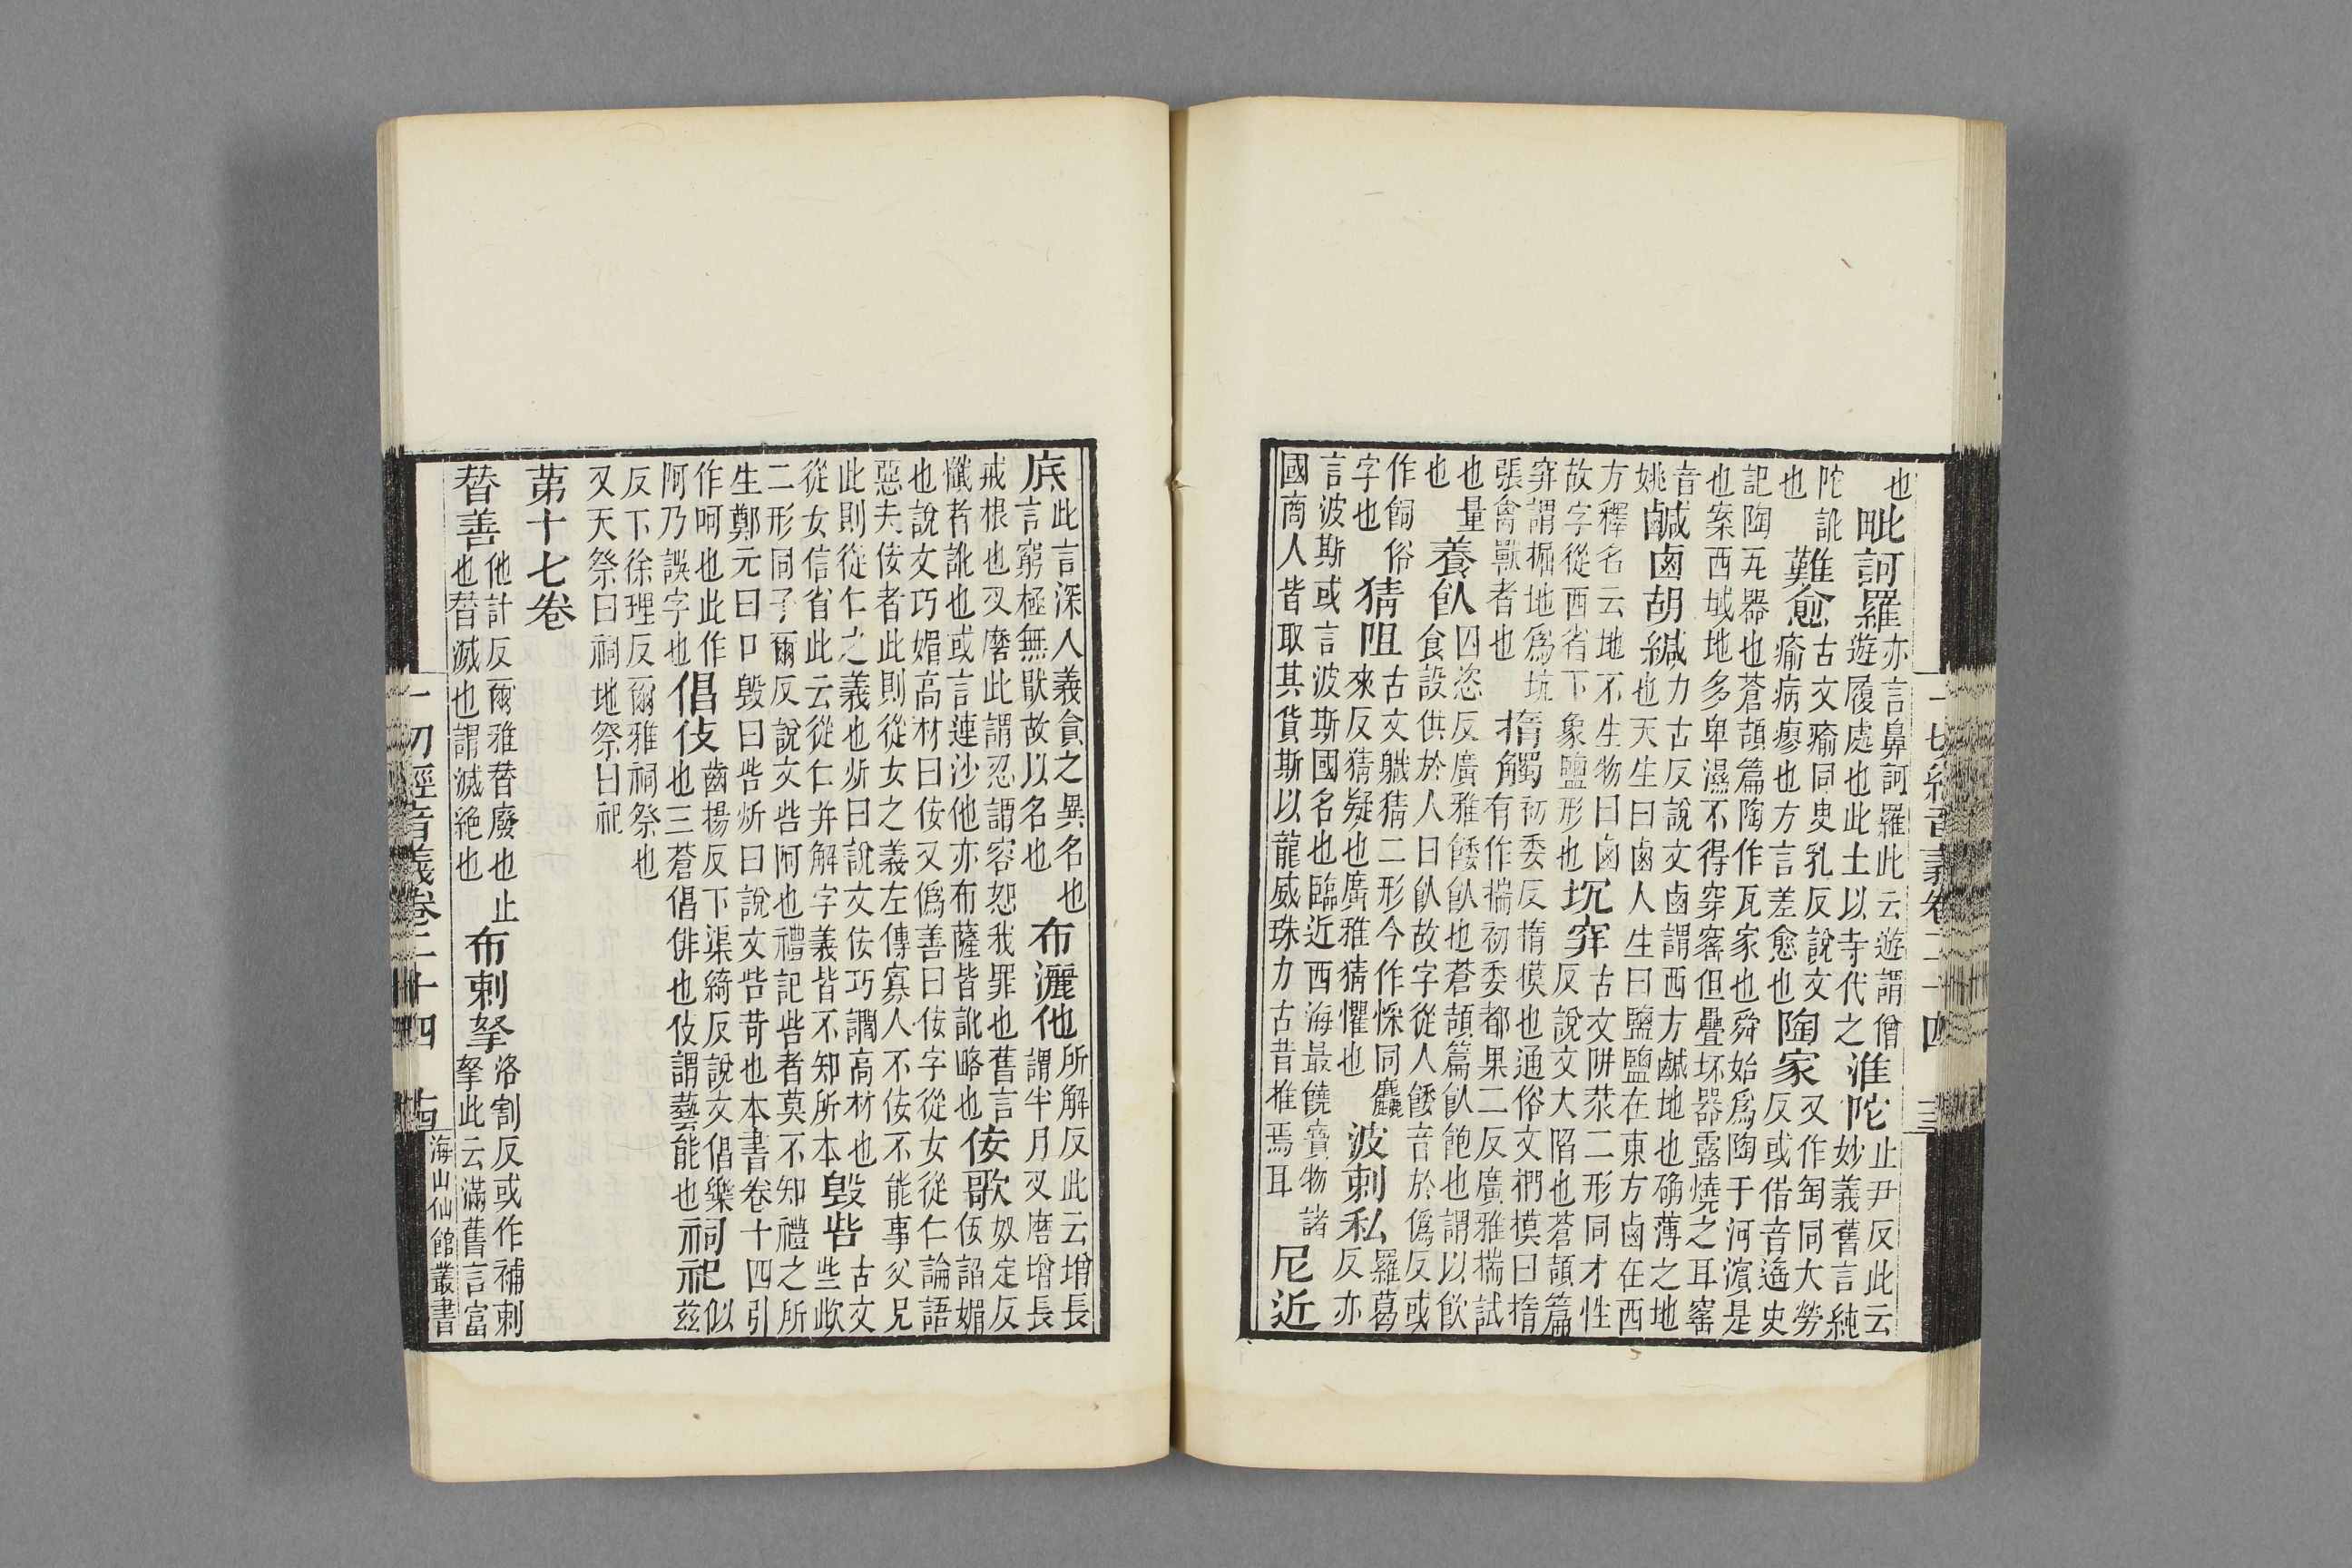 一切經音義卷二十四 三
也毗訶羅亦言鼻訶羅此云遊謂僧遊履處也此土以寺代之淮陀止尹反此云妙義舊言純
陀訛也難愈古文瘉同臾乳反說文瘉病瘳也方言差愈也陶家又作匋同大勞反或借音遙史
記陶瓦器也蒼頡篇陶作瓦家也舜始爲陶于河濵是也案西域地多卑濕不得穿窰但疊坏器露燒之耳窰
音姚鹹鹵胡緘力古反說文鹵謂西方鹹地也确薄之地也天生曰鹵人生曰鹽鹽在東方鹵在西
方釋名云地不生物曰鹵故字從西省下象鹽形也坑穽古文阱汬二形同才性反說文大陷也蒼頡篇
穽謂掘地爲坑張禽獸者也揩觸初委反揩摸也通俗文捫摸曰揩有作揣初委都果二反廣雅揣試
也量也養飤囚恣反廣雅餧飤也蒼頡篇飤飽也謂以飲食設供於人曰飤故字從人餧音於僞反或
作飼俗字也猜阻古文䑋猜二形今作倸同麤來反猜疑也廣雅猜懼也波剌私羅葛反亦
言波斯或言波斯國名也臨近西海最饒寶物諸國商人皆取其貨斯以龍威珠力古昔推焉耳尼近
底此言深入義貪之異名也言窮極無猒故以名也布灑他所解反此云增長謂半月叉磨增長
戒根也叉磨此謂忍謂容恕我罪也舊言懺者訛也或言連沙他亦布薩皆訛略也佞歌奴定反佞諂媚
也說文巧媚高材曰佞又僞善曰佞字從女從仁論語惡夫佞者此則從女之義左傳寡人不佞不能事父兄
此則從仁之義也炘曰說文佞巧讇高材也從女信省此云從仁并解字義皆不知所本毀呰古文些㰣
二形同子爾反說文呰呵也禮記呰者莫不知禮之所生鄭元曰口毀曰呰炘曰說文呰苛也本書卷十四引
作呵也此作阿乃誤字也倡伎齒揚反下渠綺反說文倡樂也三蒼倡俳也伎謂藝能也祠祀似茲
反下徐理反爾雅祠祭也又天祭曰祠地祭曰祀
苐十七卷
替善他計反爾雅替廢也止也替滅也謂滅絶也布剌拏洛割反或作補剌拏此云滿舊言富
一切經音義卷二十四 十四 海山仙館叢書